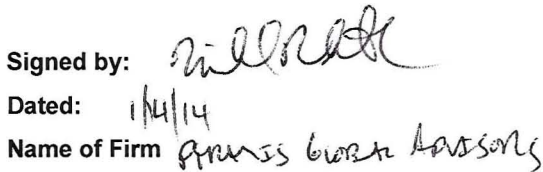 Signed by:
Dated: 1/14/14
Name of Firm PYRAMIS GLOBAL ADVISORS